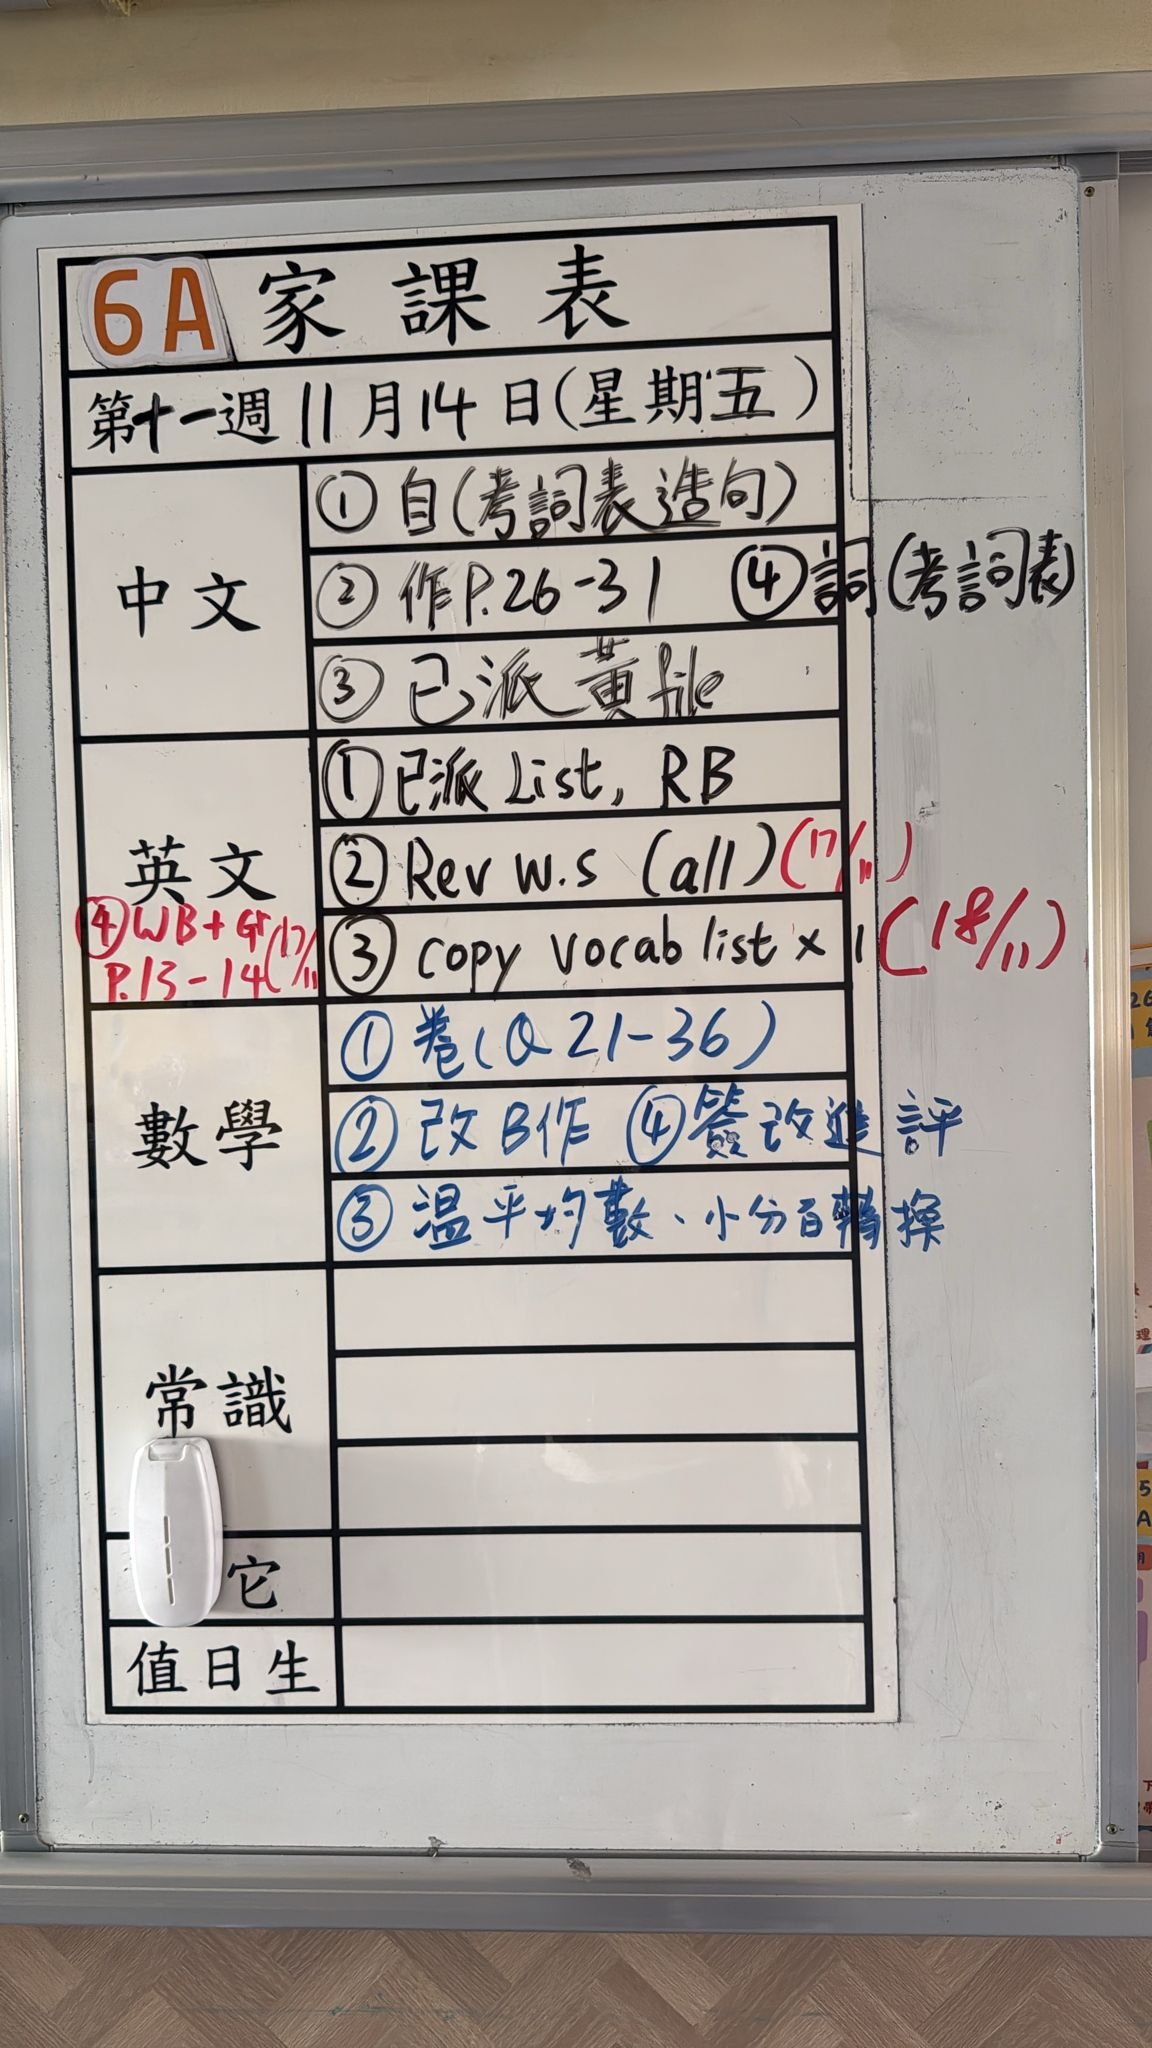 6A 家課表
第十一週 11月14日(星期五)
中文
① 自(考詞表造句)
② 作P.26-31 ④ 詞(考詞表)
③ 已派黃file
英文
① 已派 List, RB
② Rev W.S (all) (17/11)
③ copy vocab list x 1 (18/11)
④ WB + Gr
P.13-14 (17/11)
數學
① 卷(Q 21-36)
② 改B作 ④ 簽改進評
③ 溫平均數、小分百轉換
常識
它
值日生